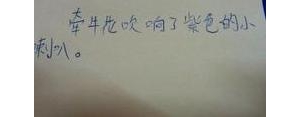 牵牛花吹响了紫色的小
喇叭。